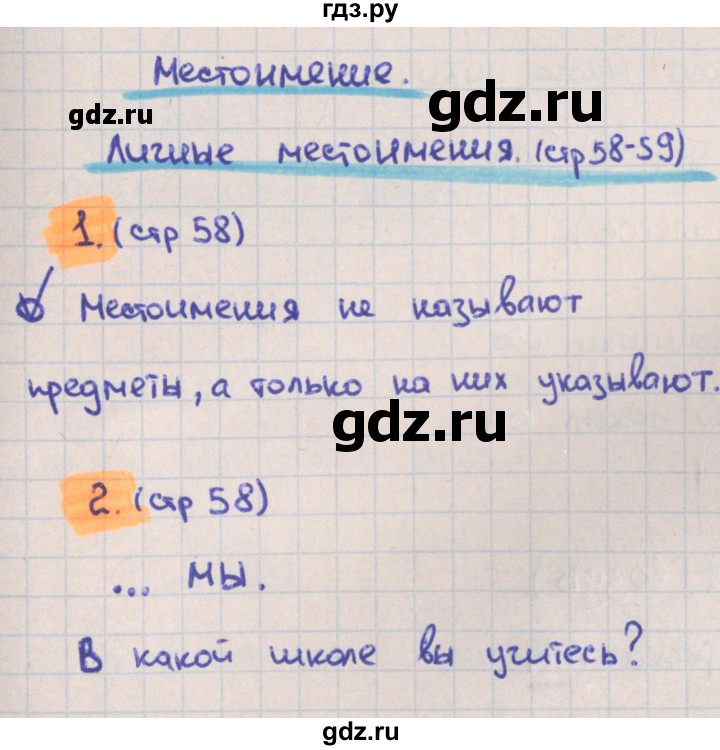 гдз.ру
Местоимение.
gdz.ru
gdz.ru
Личные местоимения. (стр 58-59)
1. (стр 58)
Местоимения не называют
предметы, а только на них указывают.
gdz.ru
2. (стр 58)
... мы.
В какой школе вы учитесь?
gdz.ru
gdz.ru